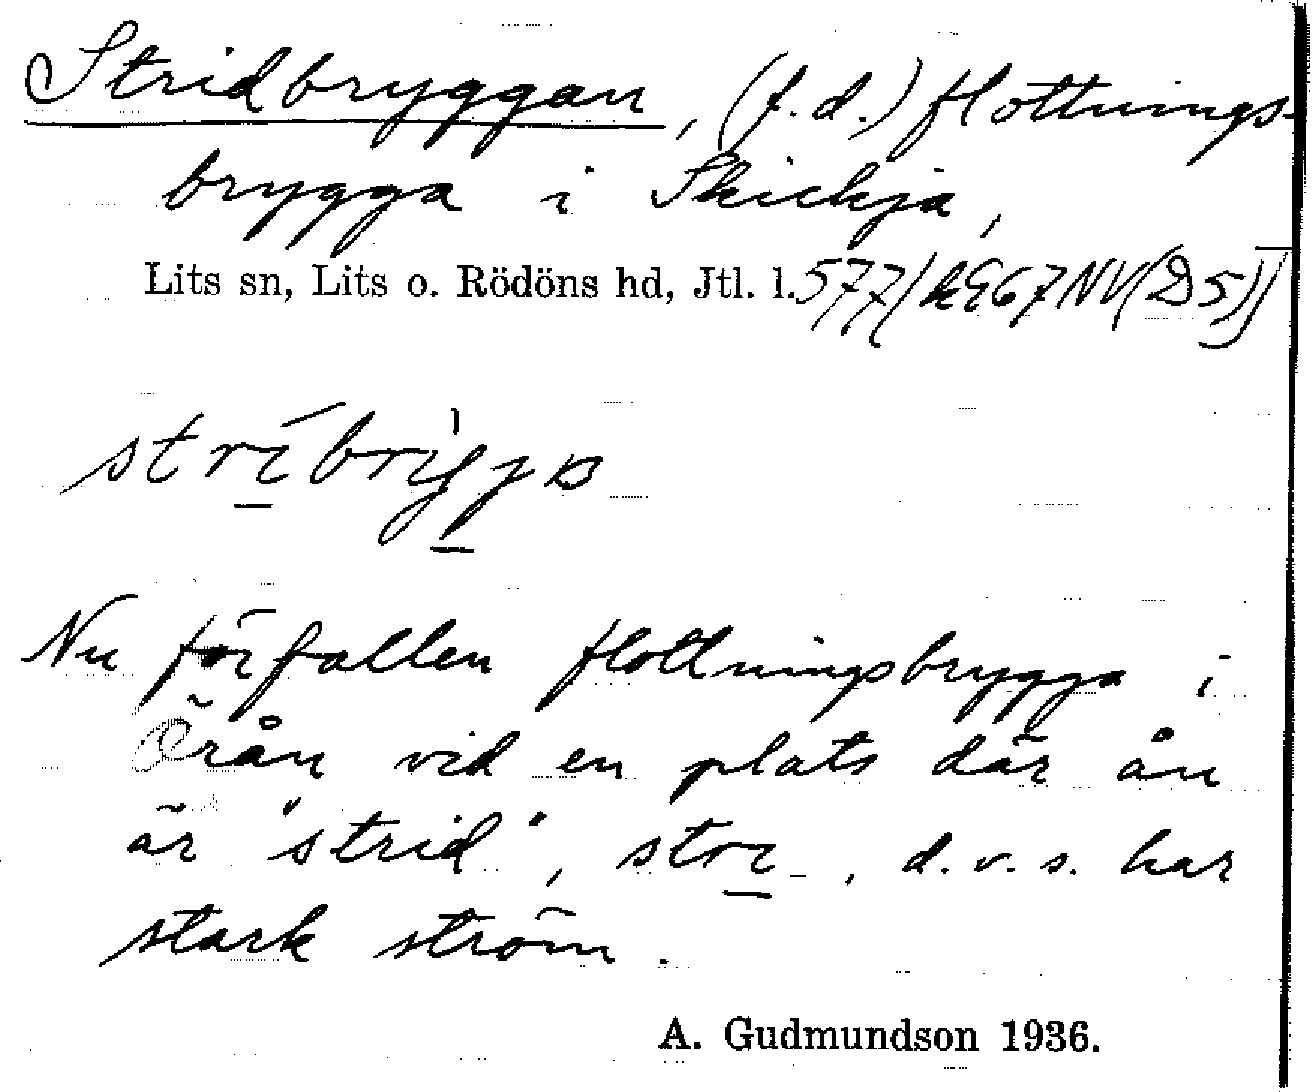 Stridbryggan, (f.d.) flottnings-
brygga i Skickja,
Lits sn, Lits o. Rödöns hd, Jtl. l. 577/k967NV(D5)]
Nu förfallen flottningsbrygga i
Örån vid en plats där ån
är "strid", strı_, d.v.s. har
stark ström.
A. Gudmundson 1936.